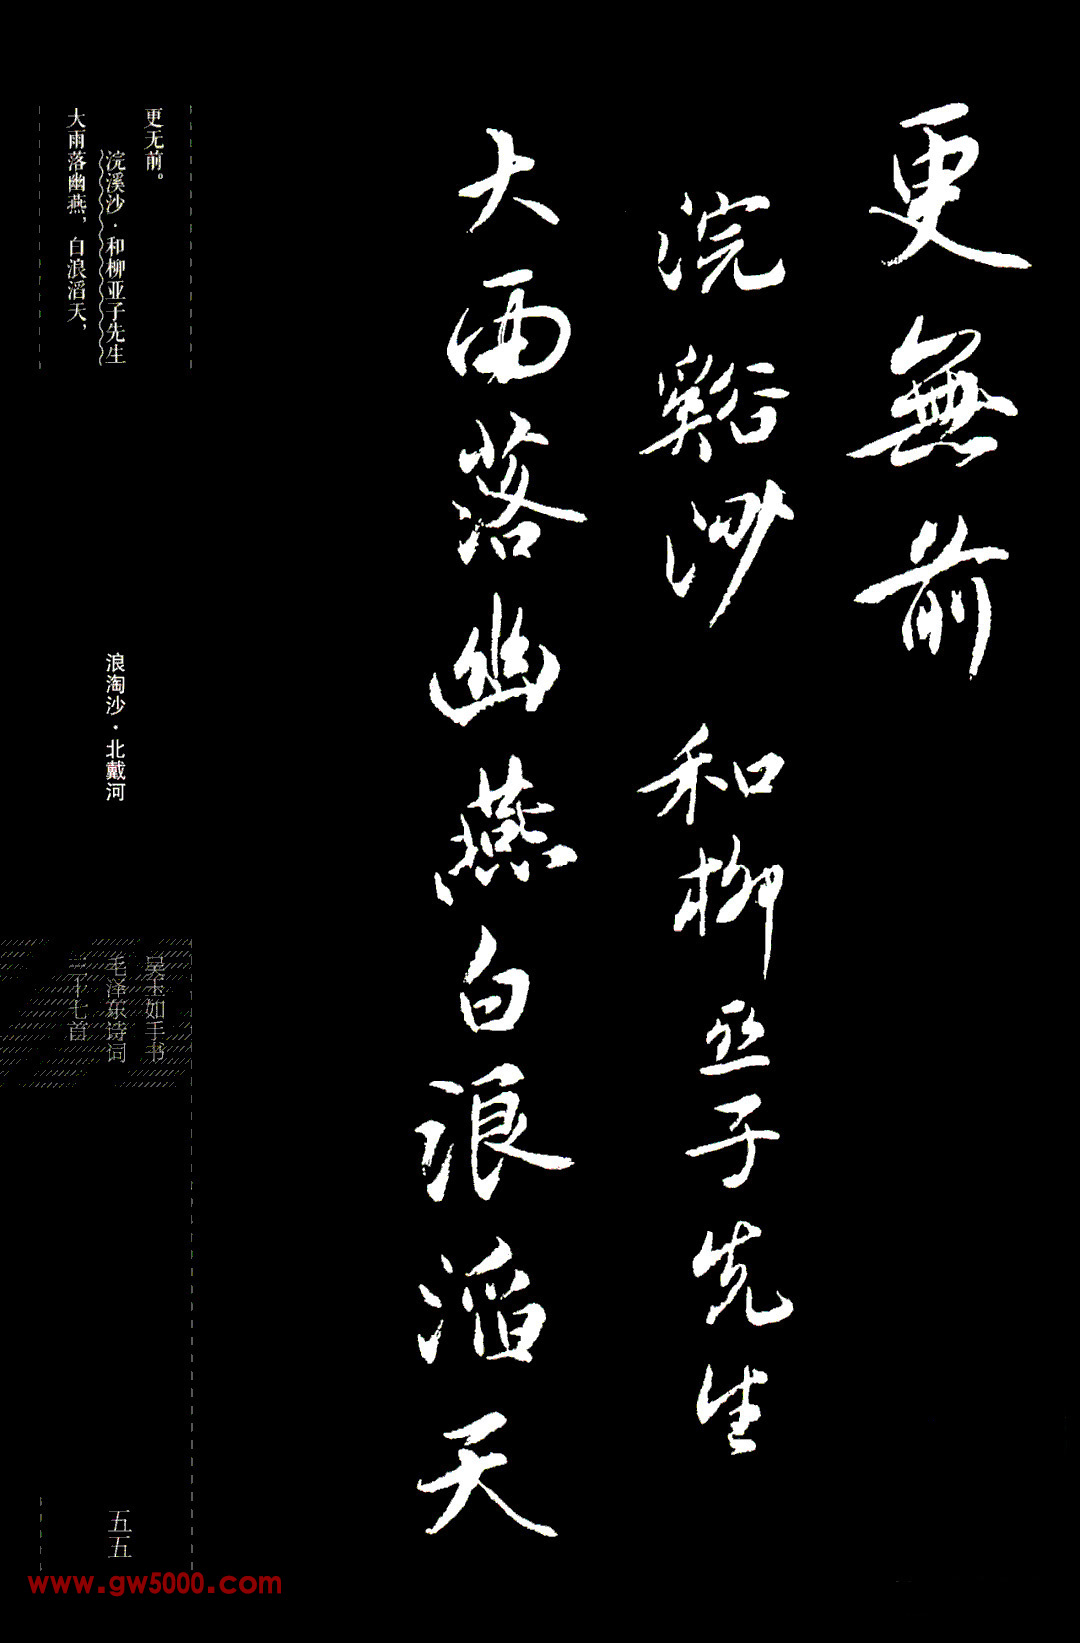 更無前
浣谿沙 和柳亞子先生
大雨落幽燕白浪滔天
更无前。
浣溪沙·和柳亚子先生
大雨落幽燕，白浪滔天，
浪淘沙·北戴河
吴玉如手书
毛泽东诗词
三十七首
五五
www.gw5000.com